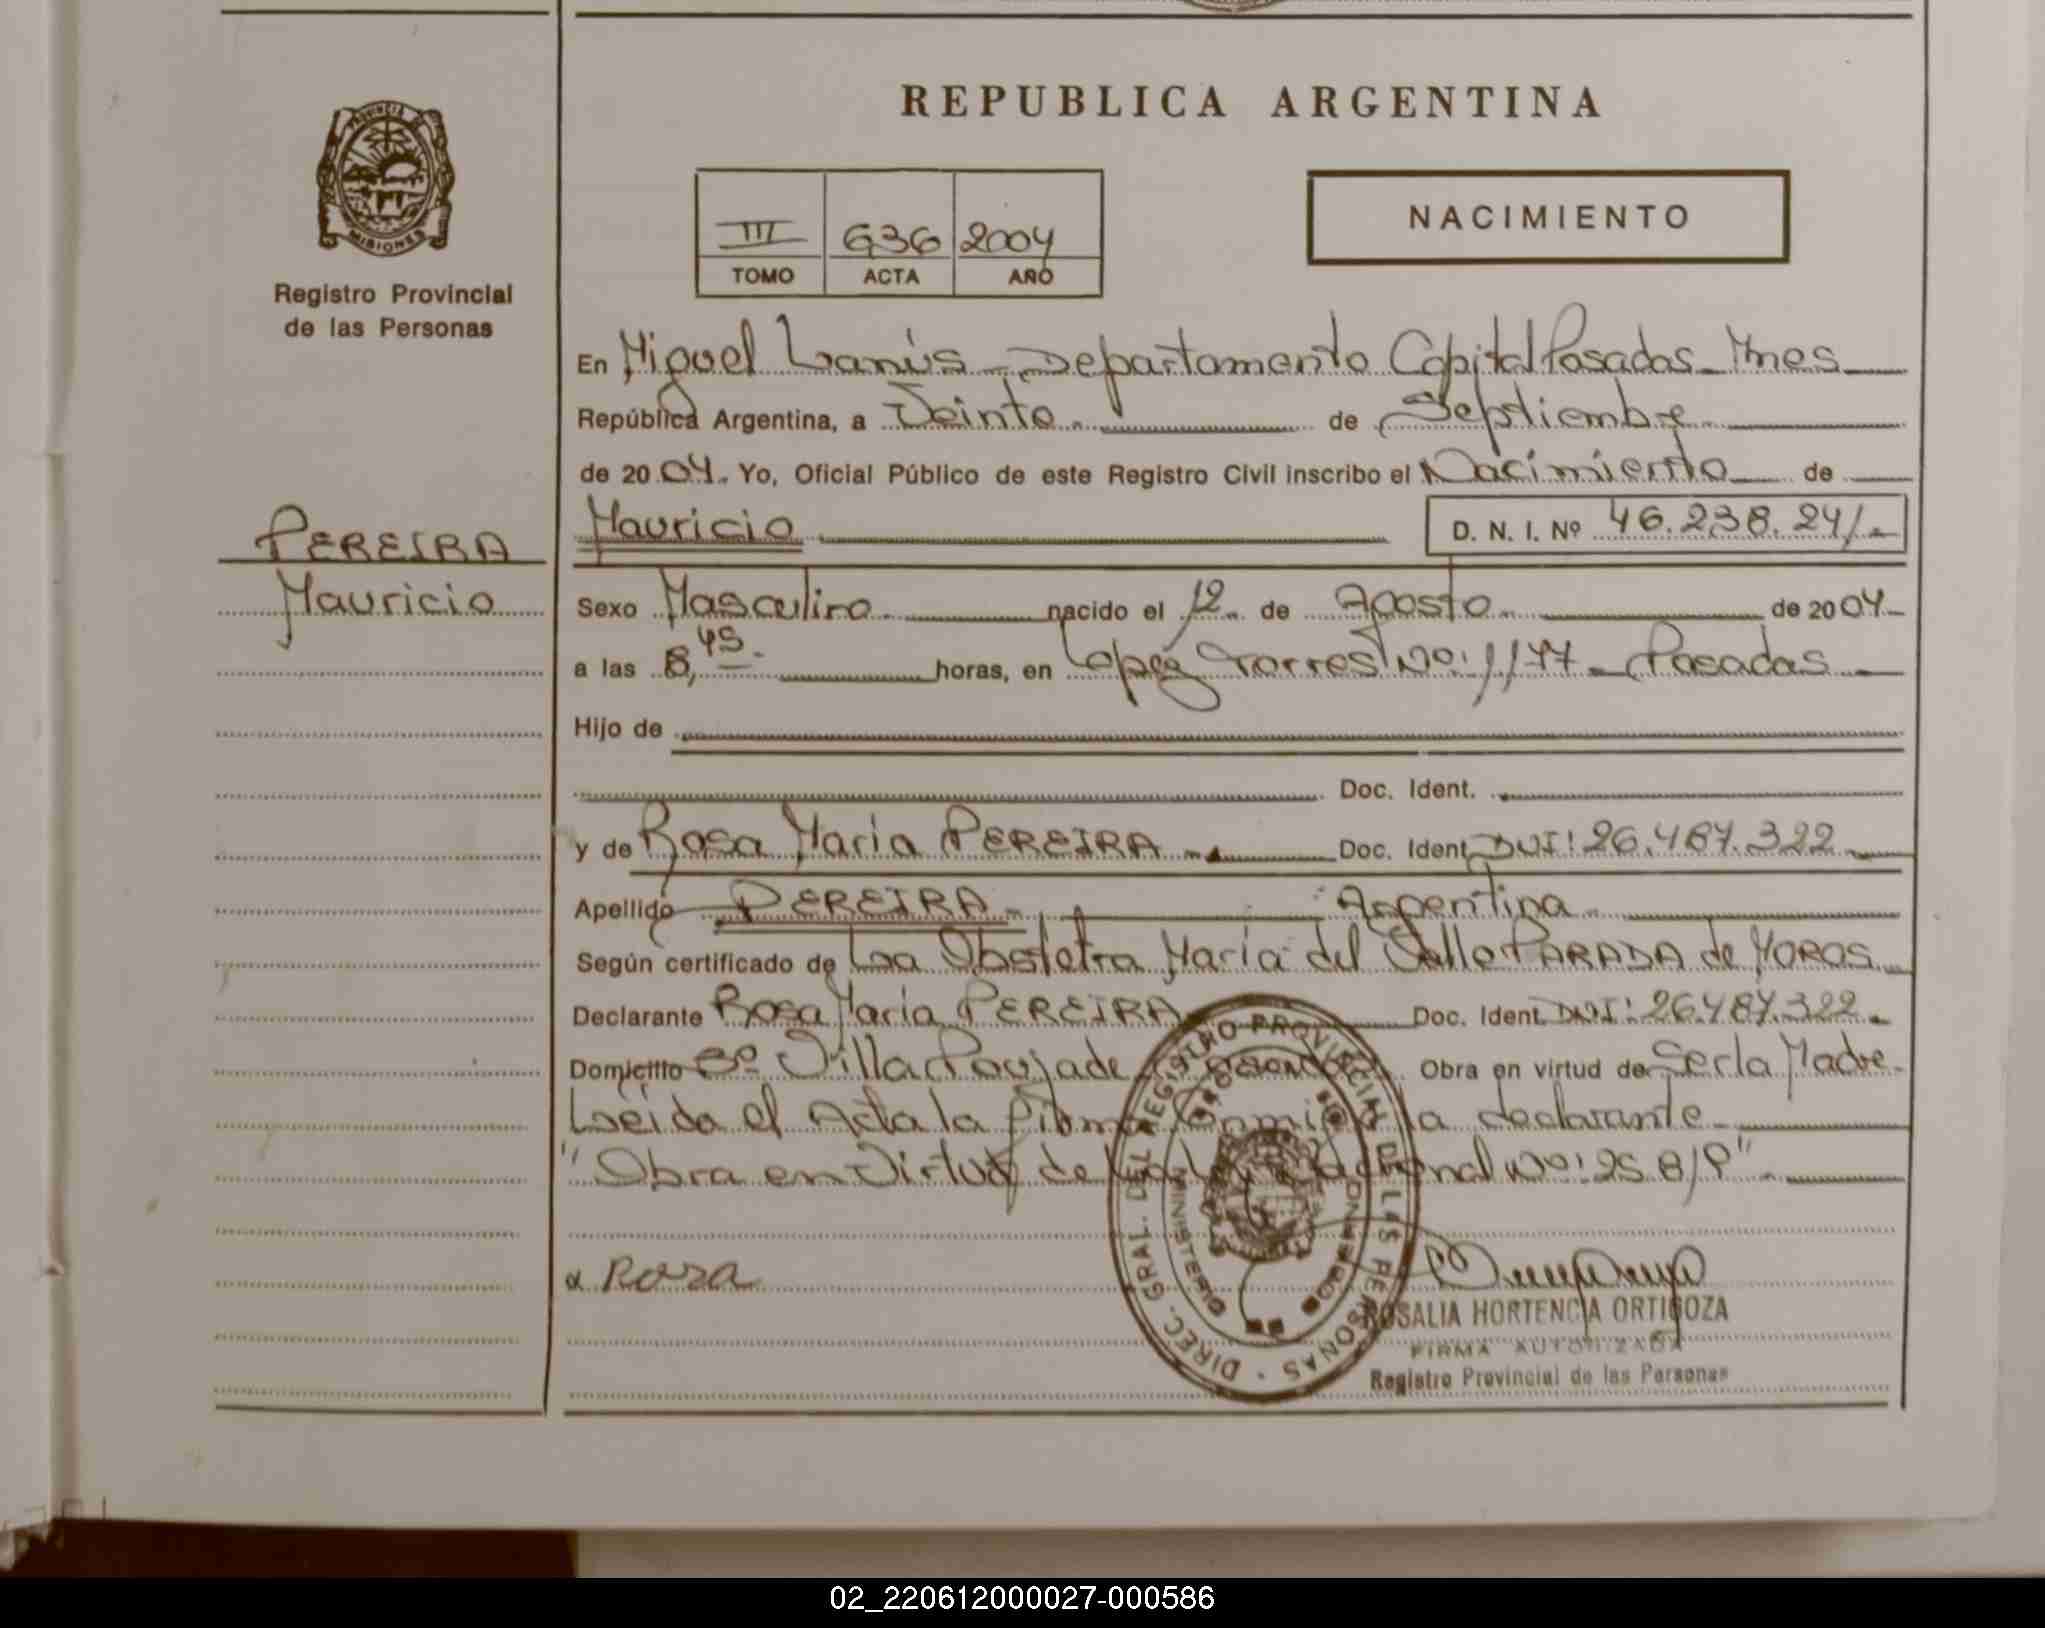 REPUBLICA ARGENTINA
PROVINCIA DE
MISIONES
Registro Provincial
de las Personas
III 636 2004
TOMO ACTA AÑO
NACIMIENTO
En Miguel Lanús - Departamento Capital Posadas - Mnes
República Argentina, a Veinte de Septiembre
de 2004. Yo, Oficial Público de este Registro Civil inscribo el Nacimiento de
PEREIRA
Mauricio
Mauricio D. N. I. Nº 46.238.241.-
Sexo Masculino nacido el 12 de Agosto de 2004-
a las 8,45. horas, en Lopéz Torres Nº: 1177 - Posadas
Hijo de
Doc. Ident.
y de Rosa María PEREIRA.- Doc. Ident. DNI: 26.487.322
Apellido PEREIRA.- Argentina.
Según certificado de La Obstetra María del Valle PARADA de MOROS
Declarante Rosa María PEREIRA Doc. Ident. DNI: 26.487.322.-
Domicilio Bº Villa Poujade Obra en virtud de Ser la Madre-
Leída el Acta la firma Conmigo la declarante-
"Obra en Virtud de Nacional Nº: 25.819".-
Rosa
DIREC. GRAL. DEL REGISTRO PROVINCIAL DE LAS PERSONAS
MINISTERIO DE GOBIERNO
ROSALIA HORTENCIA ORTIGOZA
FIRMA AUTORIZADA
Registro Provincial de las Personas
02_220612000027-000586